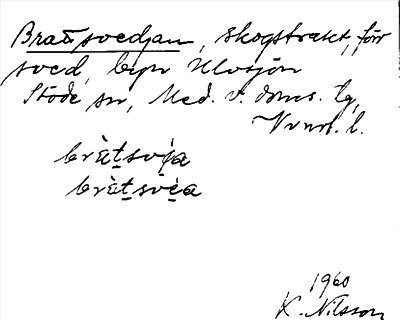 Brattsvedjan, skogstrakt, förr
sved, byn Ulvsjön
Stöde sn, Med. v. doms. tg,
Vvnrl. l.
brät̠svę́a
brèt̠svè̠a
1960
K. Nilsson